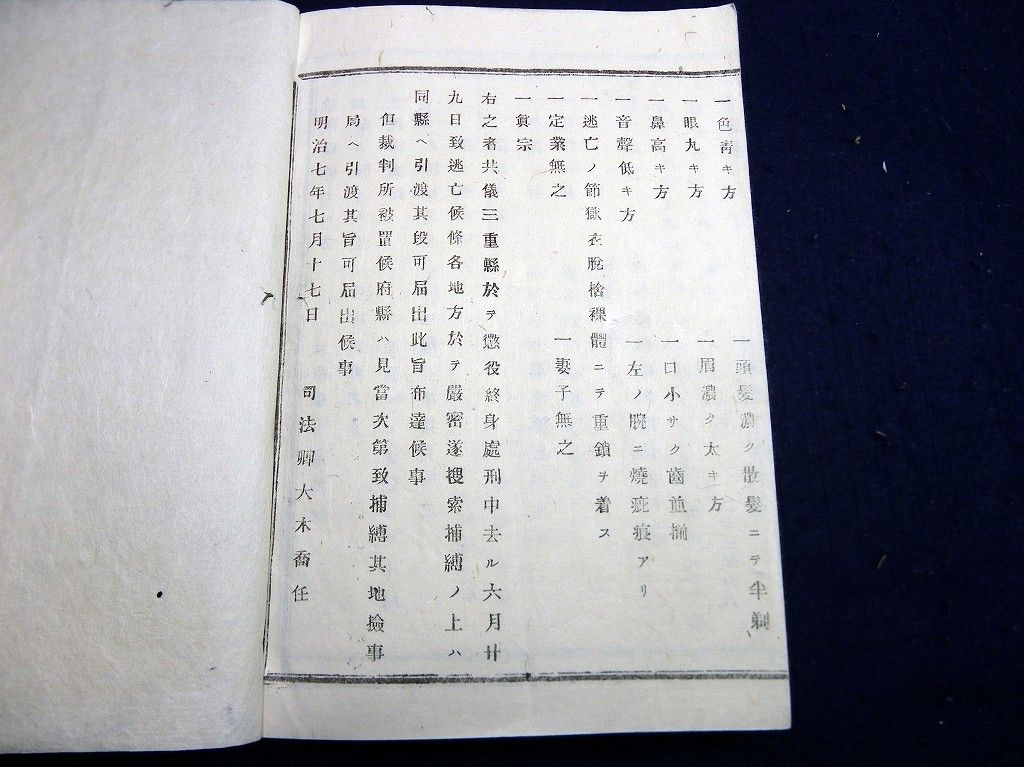 一色靑キ方 一頭髮濃ク散髮ニテ半剃
一眼丸キ方 一眉濃ク太キ方
一鼻高キ方 一口小サク齒並揃
一音聲低キ方 一左ノ腕ニ燒疵痕アリ
一逃亡ノ節獄衣脫捨裸體ニテ重鎖ヲ着ス
一定業無之 一妻子無之
一眞宗
右之者共儀三重縣於テ懲役終身處刑中去ル六月廿
九日致逃亡候條各地方於テ嚴密遂搜索捕縛ノ上ハ
同縣ヘ引渡其段可屆出此旨布達候事
但裁判所被置候府縣ハ見當次第致捕縛其地檢事
局ヘ引渡其旨可屆出候事
明治七年七月十七日 司法卿大木喬任